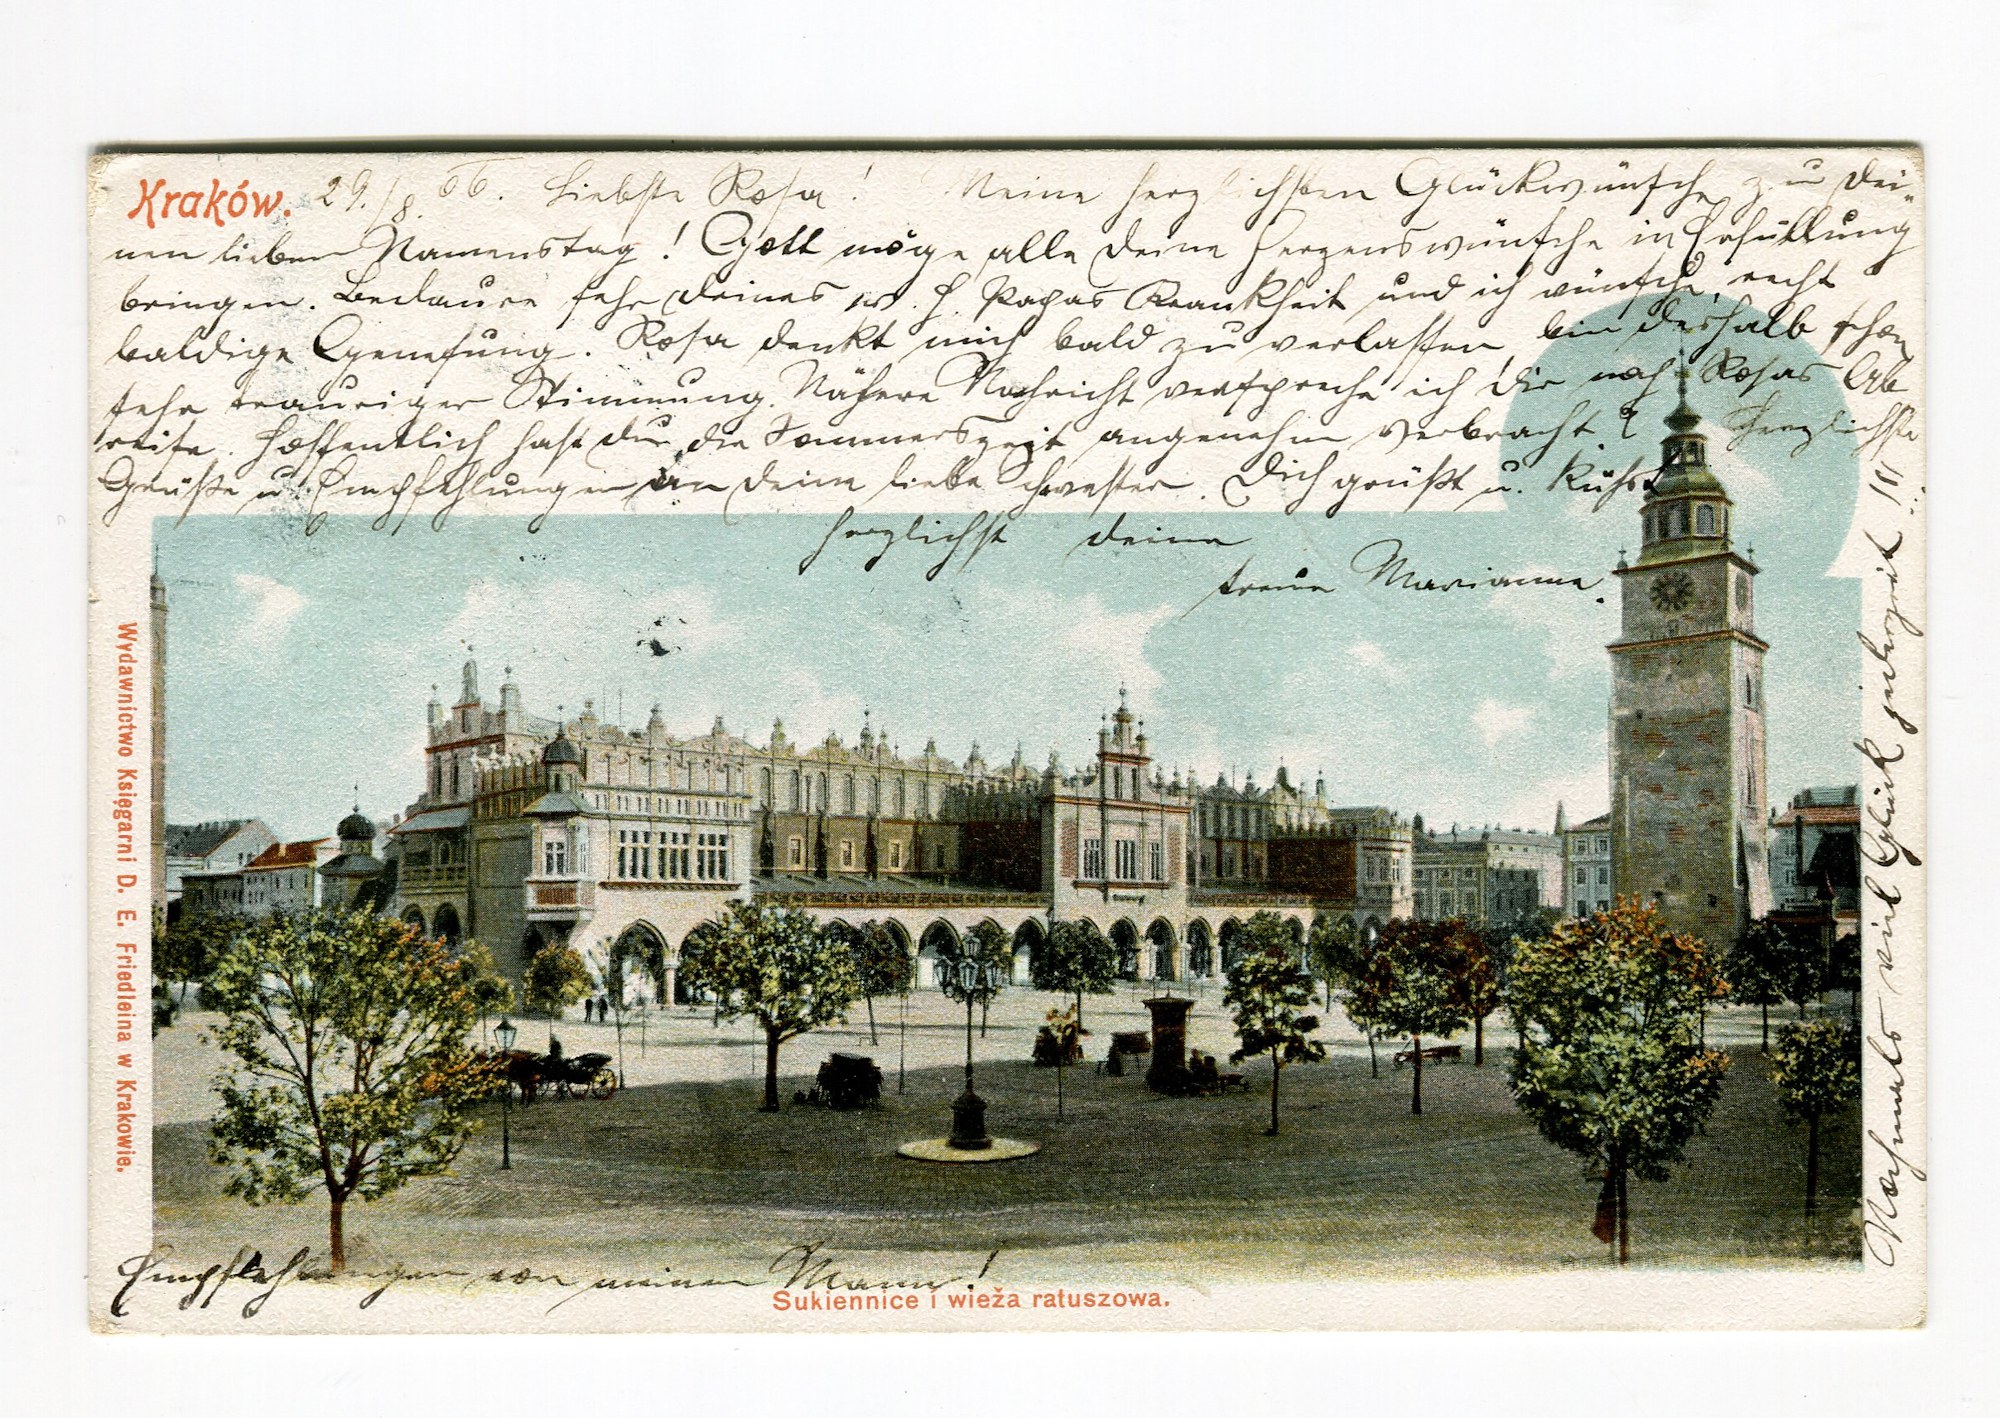 Kraków. 29./8. 06. Liebste Rosa! Meine herzlichsten Glückwünsche zu dei-
nen lieben Namenstag! Gott möge alle deine Herzenswünsche in Erfüllung
bringen. Bedaure sehr deines w. H. Papas Krankheit und ich wünsche recht
baldige Genesung. Rosa denkt mich bald zu verlassen, bin deshalb schon
sehr trauriger Stimmung. Nähere Nachricht verspreche ich dir nach Rosas Ab
reise. Hoffentlich hast du die Sommerszeit angenehm verbracht? Herzlichste
Grüße u. Empfehlungen an deine liebe Schwester. Dich grüßt u. küßt
herzlichst deine
treue Marianne.
Nochmals viel Glück jederzeit!!!
Wydawnictwo Księgarni D. E. Friedleina w Krakowie.
Empfehlungen von meinen Mann!
Sukiennice i wieża ratuszowa.